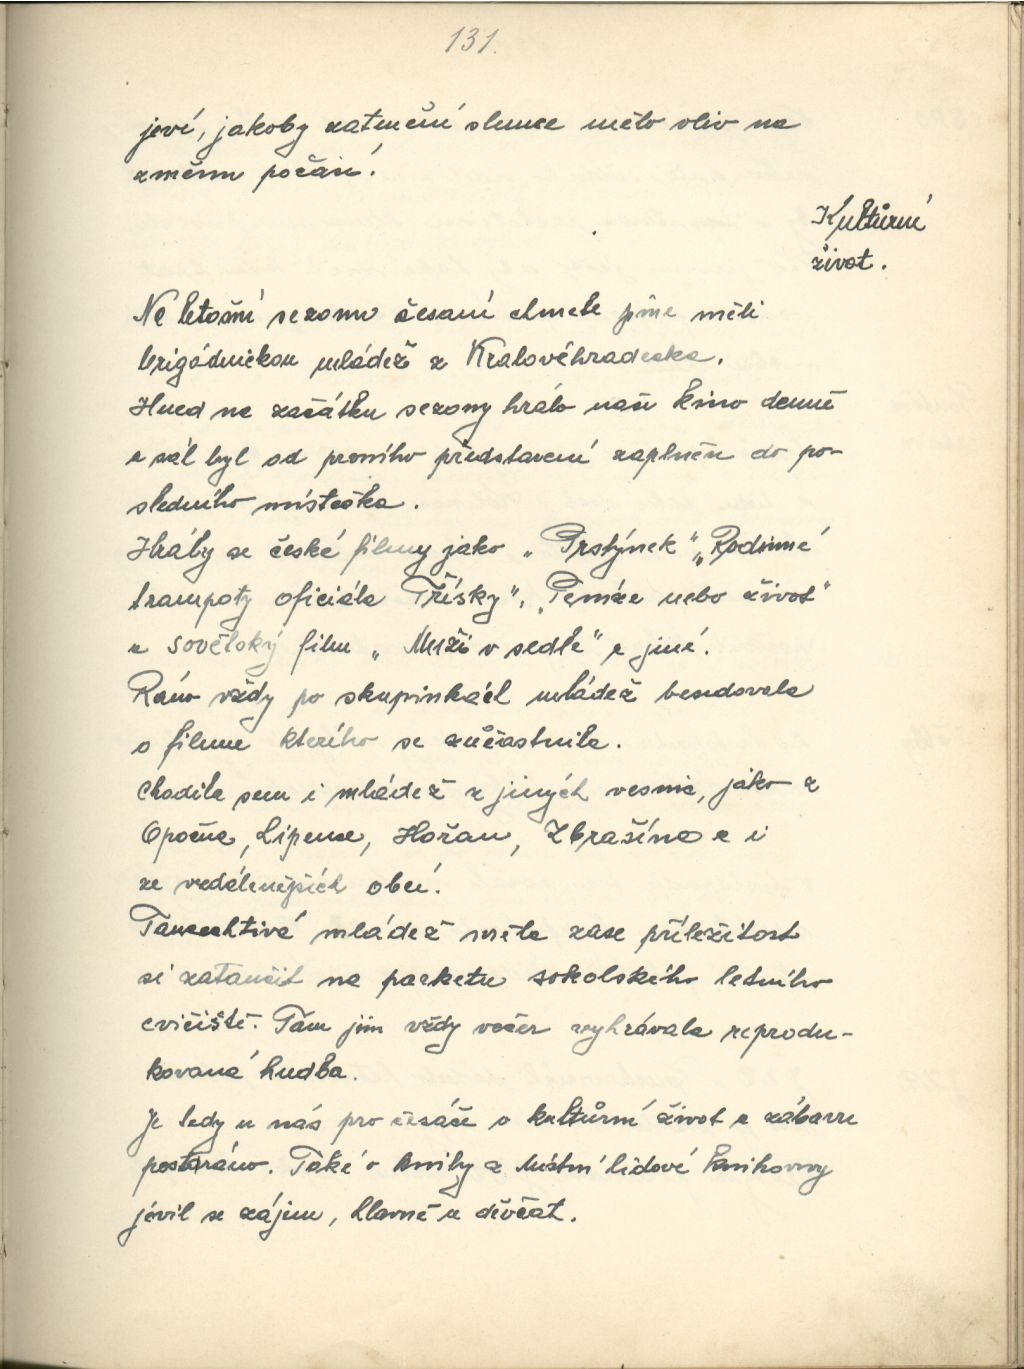 131.
jeví, jakoby zatmění slunce mělo vliv na
změnu počasí.
Kultůrní
život.
Na letošní sezonu česání chmele jsme měli
brigádnickou mládež z Královéhradecka.
Hned na začátku sezony hrálo naše kino denně
a sál byl od prvního představení zaplněn do po-
sledního místečka.
Hrály se české filmy jako „Prstýnek" „Rodinné
trampoty oficiála Třísky", „Peníze nebo život"
a sovětský film „Muži v sedle" a jiné.
Ráno vždy po skupinkách mládež besedovala
o filmu kterého se zůčastnila.
Chodila sem i mládež z jiných vesnic, jako z
Opočna, Lipence, Hořan, Zbrašína a i
ze vzdálenějších obcí.
Tancechtivá mládež měla zase příležitost
si zatančit na parketu sokolského letního
cvičiště. Tam jim vždy večer vyhrávala reprodu-
kovaná hudba.
Je tedy u nás pro česáče o kultůrní život a zábavu
postaráno. Také o knihy z Místní lidové knihovny
jevil se zájem, hlavně u děvčat.